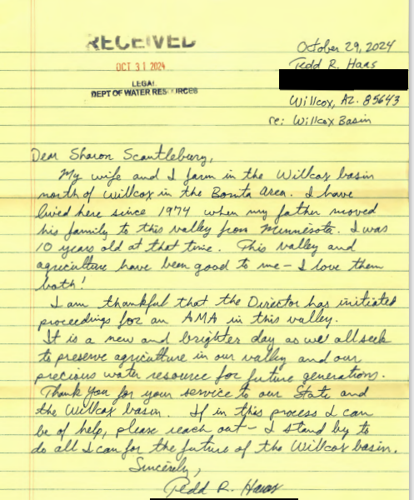 RECEIVED
OCT 31 2024
LEGAL
DEPT OF WATER RESOURCES
October 29, 2024
Tedd R. Haas
Willcox, AZ. 85643
re: Willcox Basin
Dear Sharon Scantlebury,
My wife and I farm in the Willcox basin
north of Willcox in the Bonita Area. I have
lived here since 1974 when my father moved
his family to this valley from Minnesota. I was
10 years old at that time. This valley and
agriculture have been good to me - I love them
both!
I am thankful that the Director has initiated
proceedings for an AMA in this valley.
It is a new and brighter day as we all seek
to preserve agriculture in our valley and our
precious water resource for future generations.
Thank you for your service to our State and
the Willcox basin. If in this process I can
be of help, please reach out - I stand by to
do all I can for the future of the Willcox basin.
Sincerely,
Tedd R. Haas